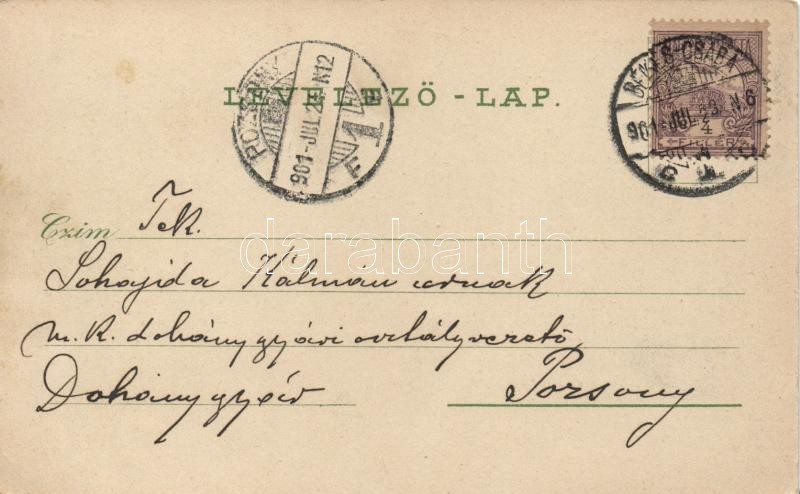 LEVELEZŐ - LAP.
POZSONY
901-JUL.24.N12
F 1
BÉKÉS-CSABA
901-JUL.23.N.6
4
FILLÉR
Czim Tek.
Sohajda Kálmán urnak
m. k. dohánygyári osztályvezető
Dohánygyár Pozsony
darabanth